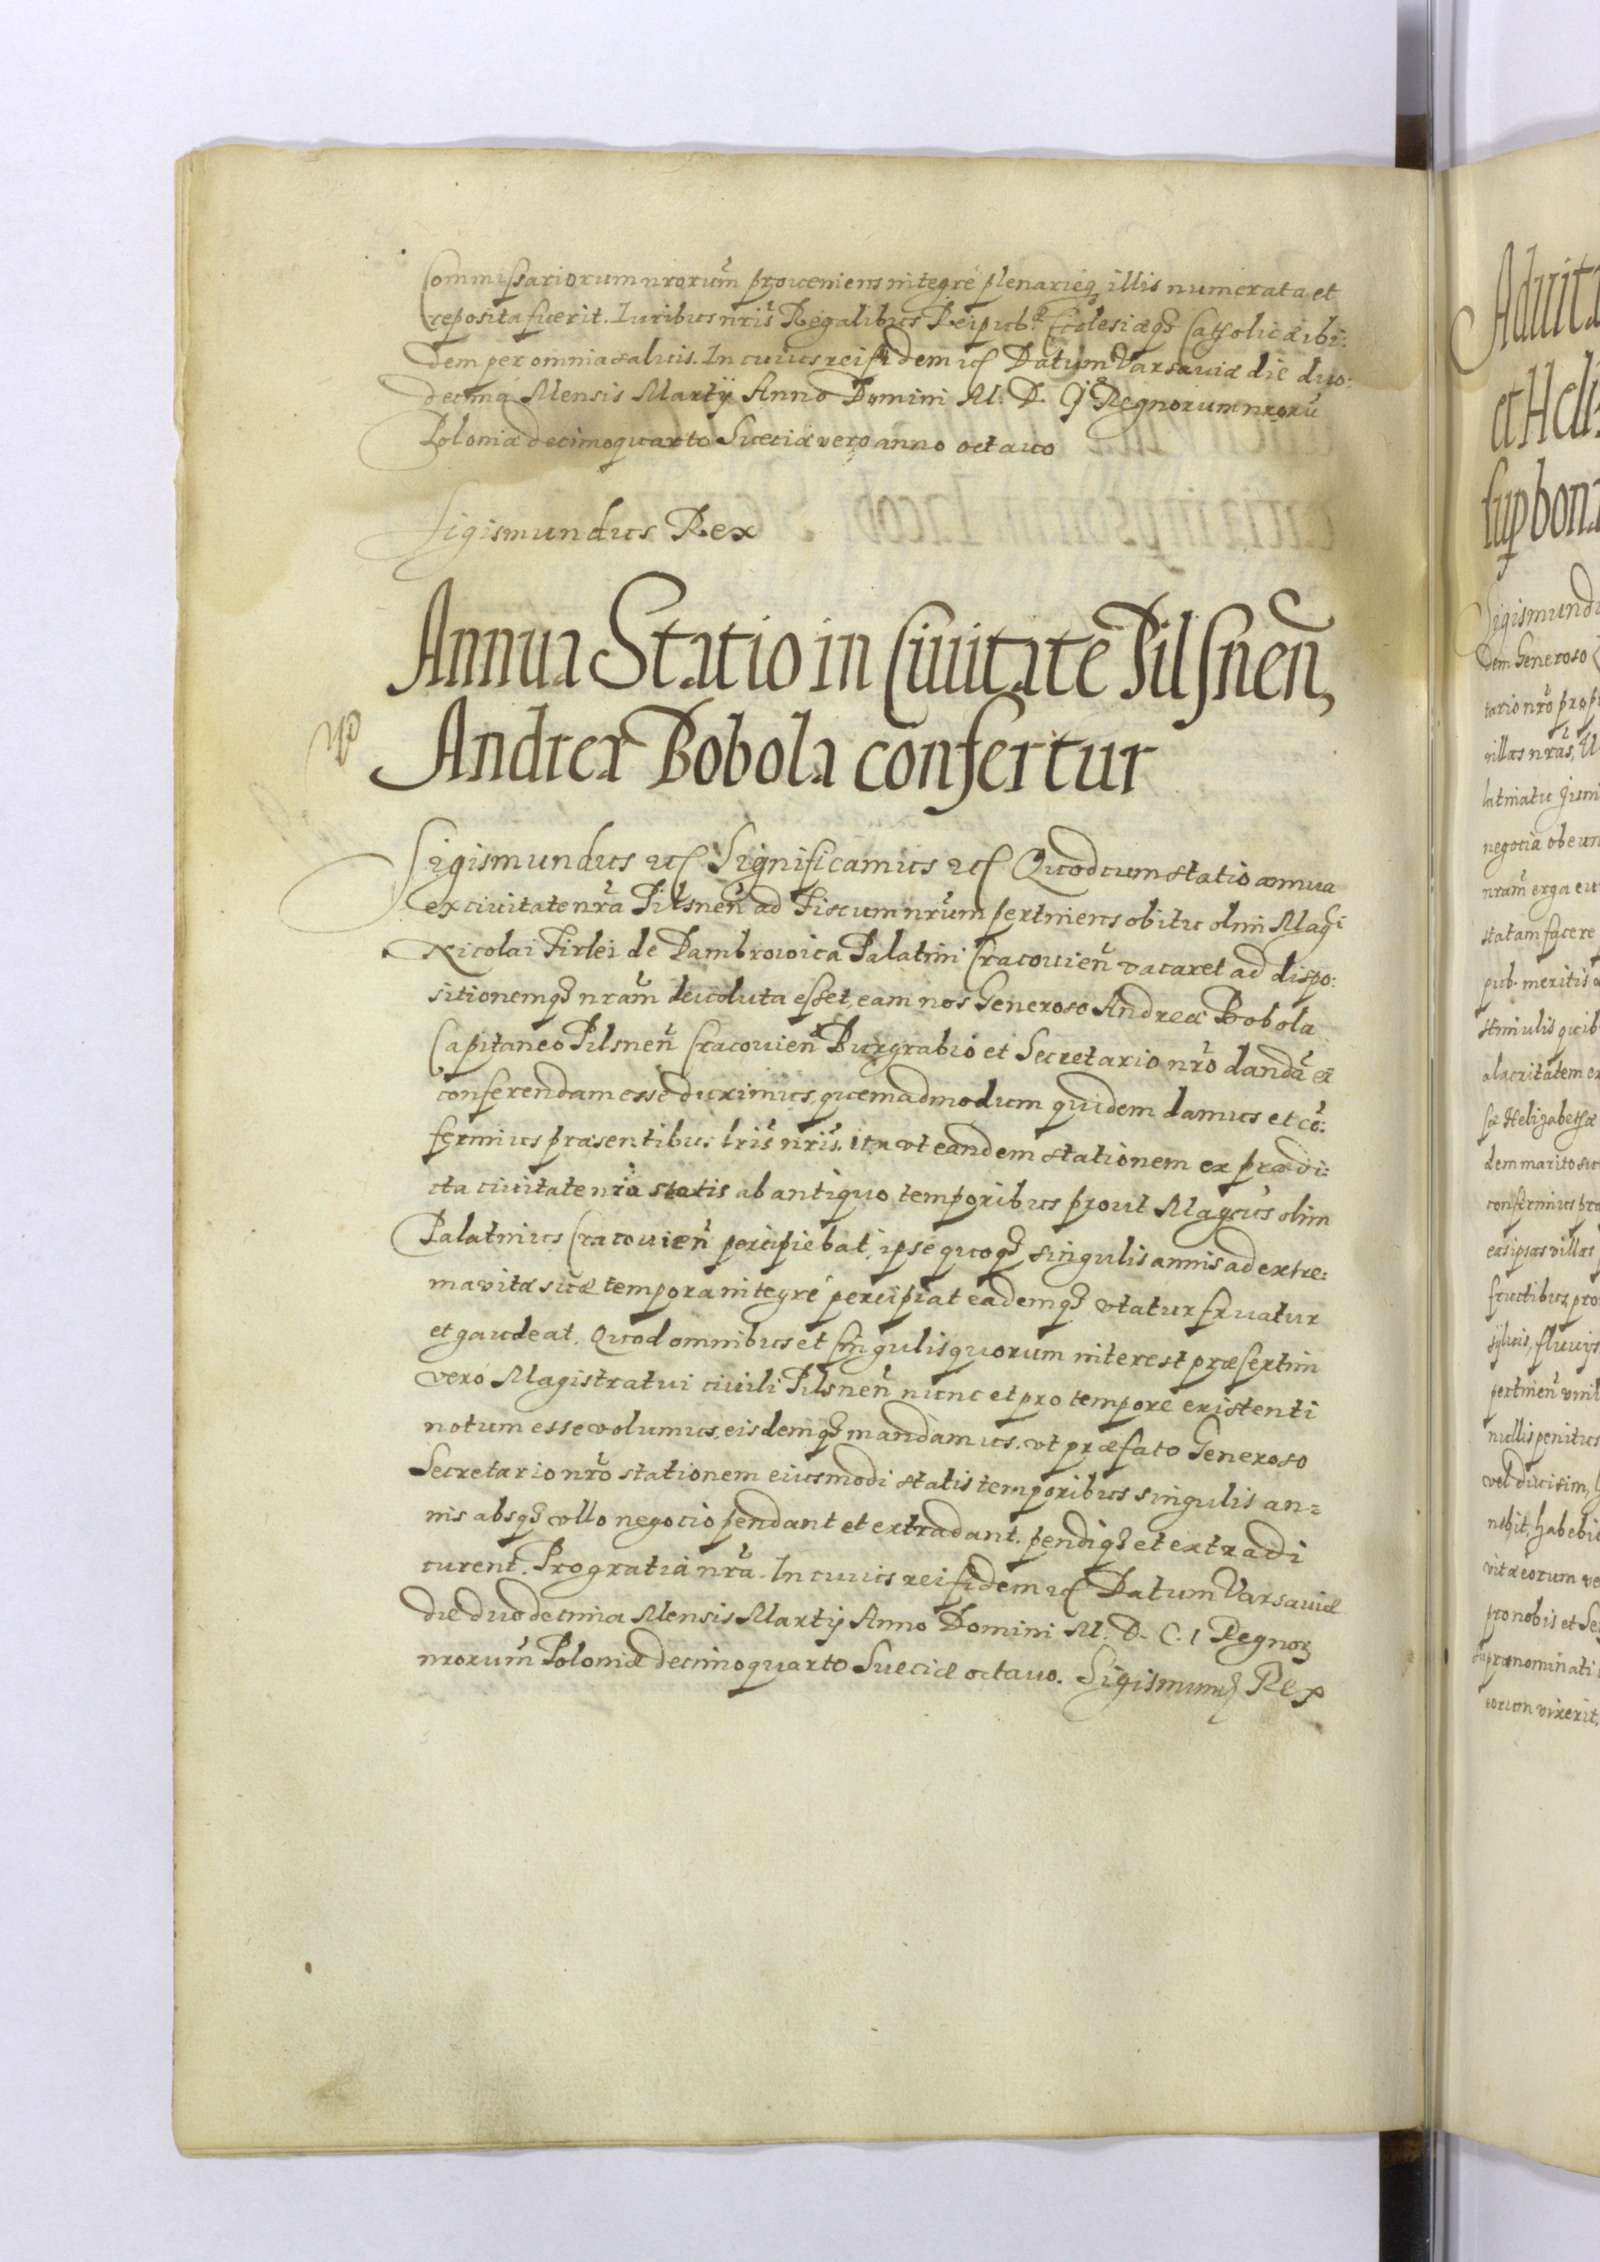 Commissariorum nrorum̃ proueniens integrè plenarieq́ illis numerata et
reposita fuerit. Iuribus nris̃ Regalibus Reipub: Ecclesiæq́ Catholicæ ibi:
dem per omnia saluis. In cuius rei fidem ꝛc Datum Varsauiæ die duo:
decima Mensis Martij Anno Domini M. D. C I Regnorum nrorũ
Poloniæ decimoquarto Sueciæ vero anno octauo
Sigismundus Rex
Annua Statio in Ciuitate Pilsneñ,
Andreæ Bobola confertur
Sigismundus ꝛc Significamus ꝛc Quod cum statio annua
ex ciuitate nrã Pilsneñ ad Fiscum nrum̃ pertinens obitu olim Magci
Nicolai Firlei de Dambrowica Palatini Cracouieñ vacaret ad dispo:
sitionemq́ nram̃ deuoluta esset, eam nos Generoso Andreæ Bobola
Capitaneo Pilsneñ Cracouieñ Burgrabio et Secretario nrõ dandã et
conferendam esse duximus, quemadmodum quidem damus et cõ:
ferimus præsentibus lris̃ nris̃. ita vt eandem stationem ex prædi:
cta ciuitate nrã statis ab antiquo temporibus prout Magcus olim
Palatinus Cracouieñ percipiebat, ipse quoq́ singulis annis ad extre:
ma vitæ suæ tempora integrè percipiat eademq́ vtatur fruatur
et gaudeat. Quod omnibus et singulis quorum interest præsertim
vero Magistratui ciuili Pilsneñ nunc et pro tempore existenti
notum esse volumus, eisdemq́ mandamus, vt præfato Generoso
Secretario nrõ stationem eiusmodi statis temporibus singulis an=
nis absq́ vllo negocio pendant et extradant, pendiq́ et extradi
curent. Pro gratia nrã. In cuius rei fidem ꝛc Datum Varsauiæ
die duodecima Mensis Martij Anno Domini M. D. C. I Regnoꝝ
nrorum̃ Poloniæ decimoquarto Sueciæ octauo. Sigismundꝰ Rex
Aduita
et Heli
sup bona
Sigismundu
dem Generoso
tario nrõ prop
villas nras̃,
latinatu
negotia obeun
nram̃ erga eu
statam facere
pub. meritis
stimulis quib
alacritatem ex
sæ Helizabethæ
dem marito su
conferimus præ
eas ipsas villas
fructibus, pro
syluis, fluuijs
pertineñ
nullis penitus
vel diuisim,
nebit, habebi
vitæ eorum
pro nobis et Se
supranominati
eorum vixerit,